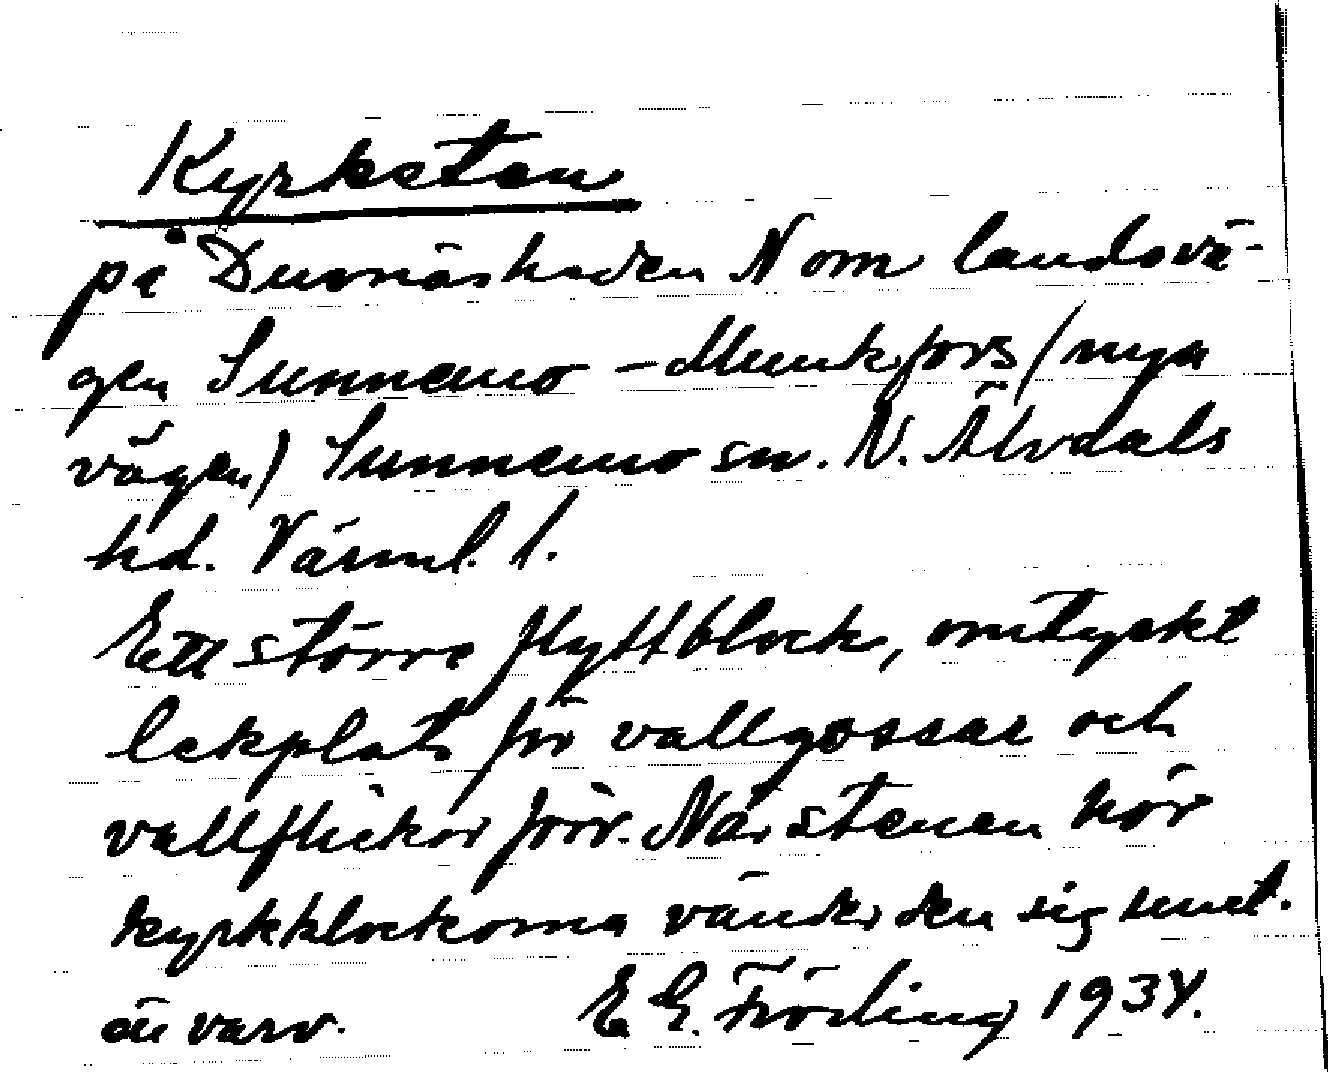 Kyrksten
på Dunnäsheden N om landsvä-
gen Sunnemo - Munkfors (nya
vägen) Sunnemo sn. N. Älvdals
hd. Värml. l.
Ett större flyttblock, omtyckt
lekplats för vallgossar och
vallflickor förr. När stenen hör
kyrkklockorna vänder den sig runt.
en varv. E G. Fröding 1934.